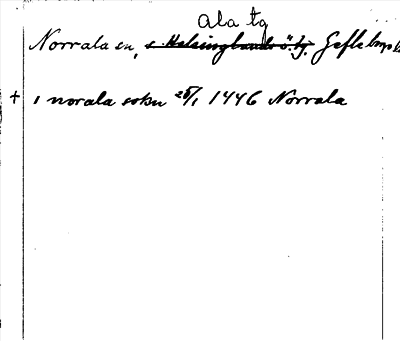 Ala tg
Norrala sn, s. Helsinglands ö. tg. Gefleborgs
+ i norala sokn 25/1 1446 Norrala